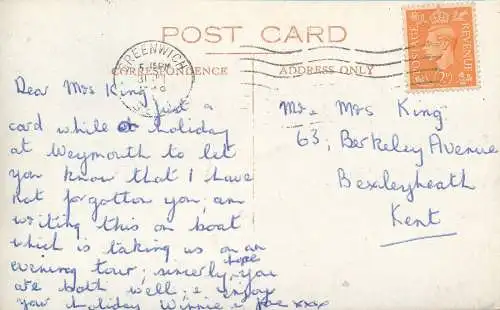 POST CARD
CORRESPONDENCE
ADDRESS ONLY
GREENWICH
5.15PM
POSTAGE
REVENUE
Dear Mrs King,
Just a
card while on holiday
at Weymouth to let
you know that I have
not forgotten you, am
writing this on boat
which is taking us on an
evening tour; sincerly hope you
are both well; & enjoy
your holiday Winnie & Joe xxx
Mr. Mrs King
63, Berkeley Avenue
Bexleyheath
Kent